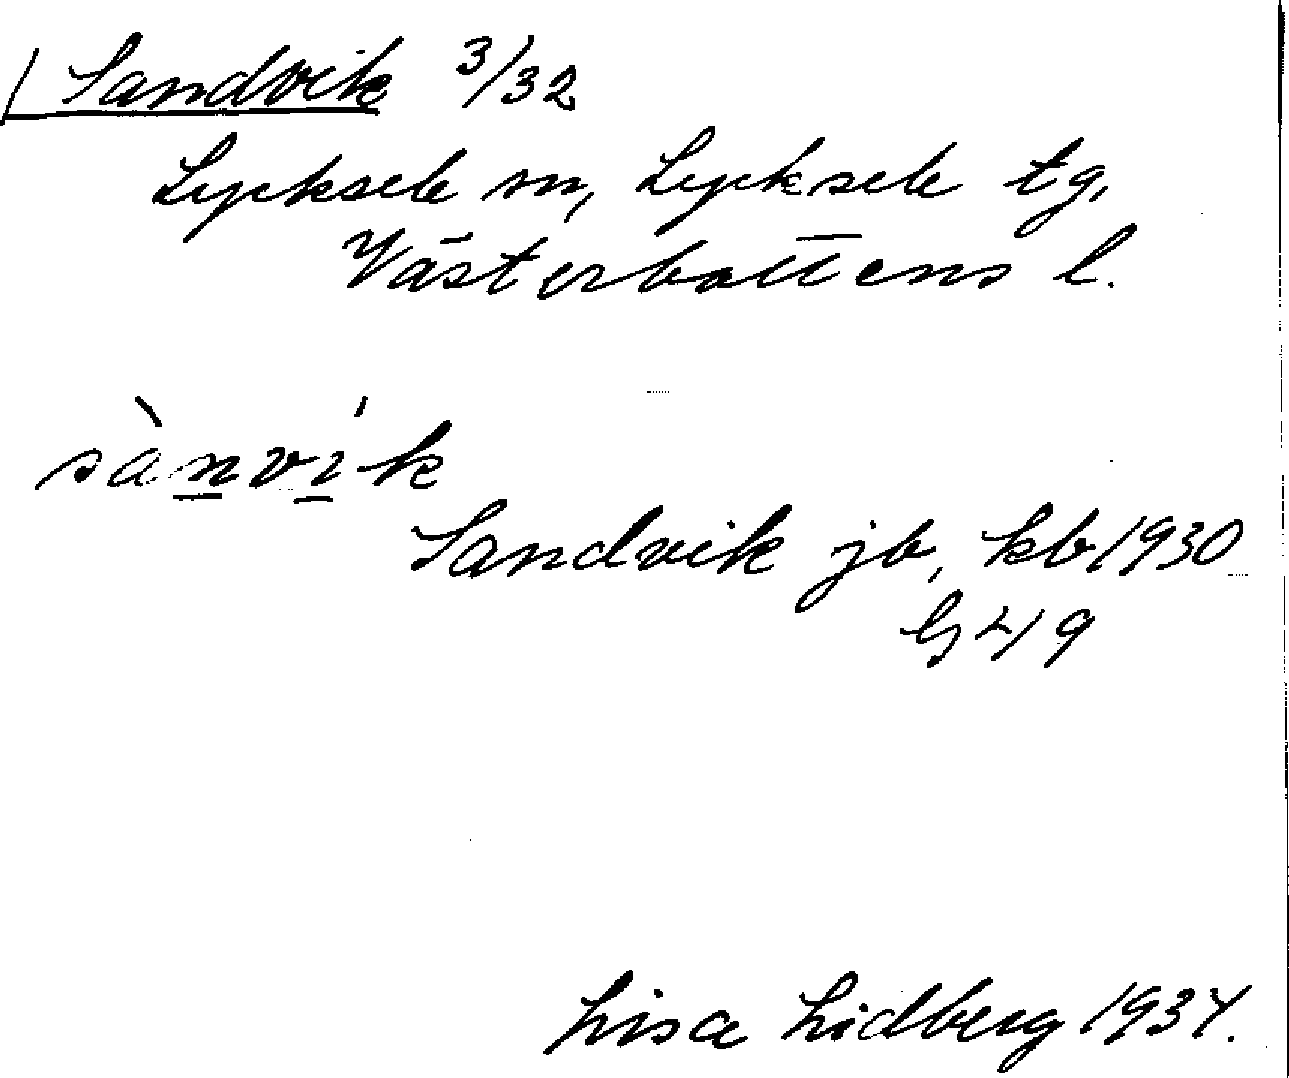 Sandvik 3/32
Lycksele sn, Lycksele tg,
Västerbottens l.
sànvík
Sandvik jb, kb 1930
Lisa Lidberg 1934.